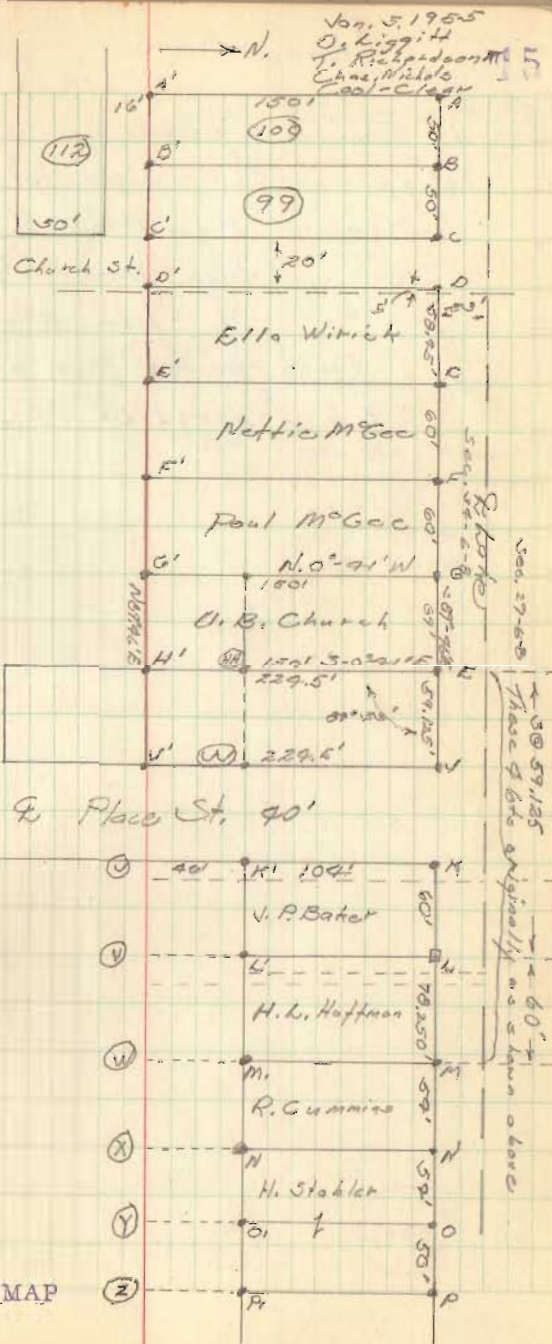 Jan. 5, 1955
→ N. O. Liggitt
T. Richardson
Chas. Nichols
Cool-Clear
5
A' 150' A
16'
100
50'
112
B' B
99
50'
50'
C' C
Church St. 20'
D' D
5'
58.95'
Ella Wirick
E' E
Nettie McGee 60'
F' F
Paul McGee 60'
Sec. 34-6-8
Sec. 27-6-8
G' N. 0°-41' W G
150'
U. B. Church
H' 150' S-0°41' E
229.5'
59.125'
J' 229.5' J
← 3@ 59.125 → ← 60' →
These 4 lots originally as shown above
℄ Place St. 40'
U 46' K' 104' K
J. P. Baker 60'
V L' L
H. L. Hoffman 78.250'
W M, M
R. Cummins 54'
X N N
H. Stahler 54'
Y O, O
50'
MAP Z P, P